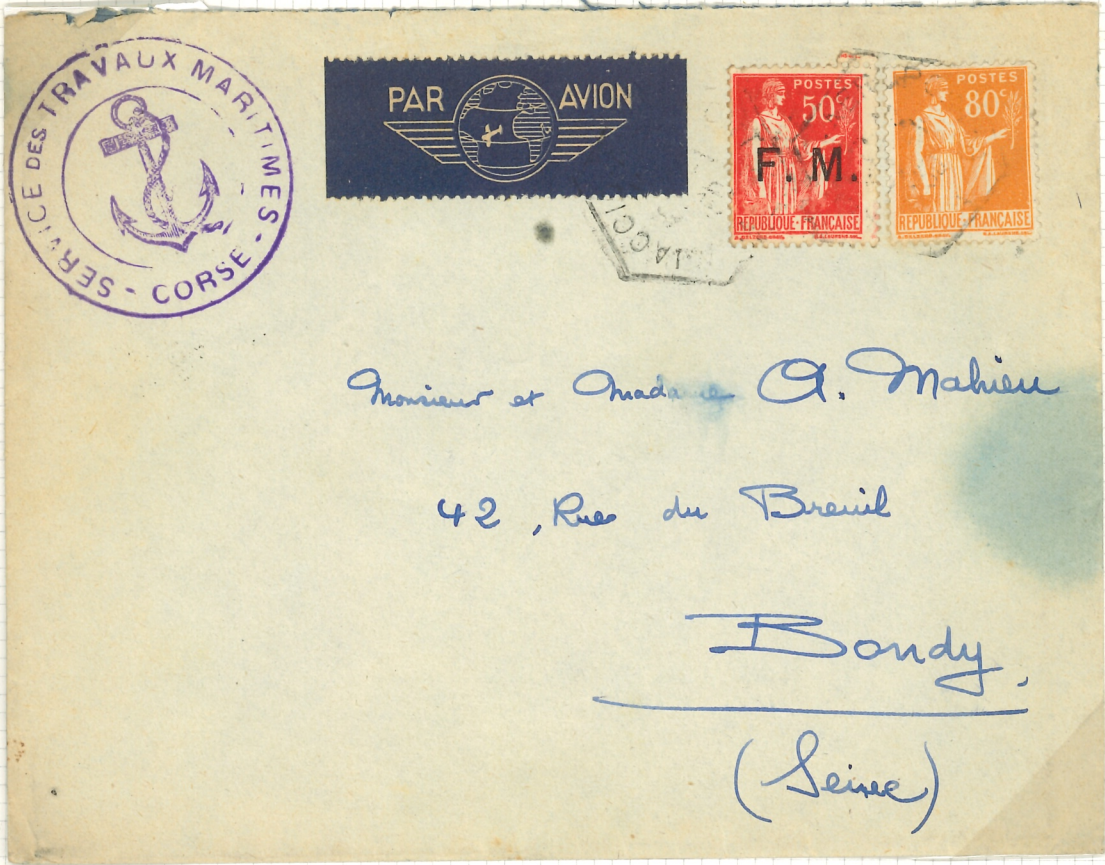 SERVICE DES TRAVAUX MARITIMES - CORSE -
PAR AVION
POSTES
50c
F. M.
RÉPUBLIQUE-FRANÇAISE
POSTES
80c
RÉPUBLIQUE-FRANÇAISE
Monsieur et Madame A. Mahieu
42, Rue du Breuil
Bondy.
(Seine)